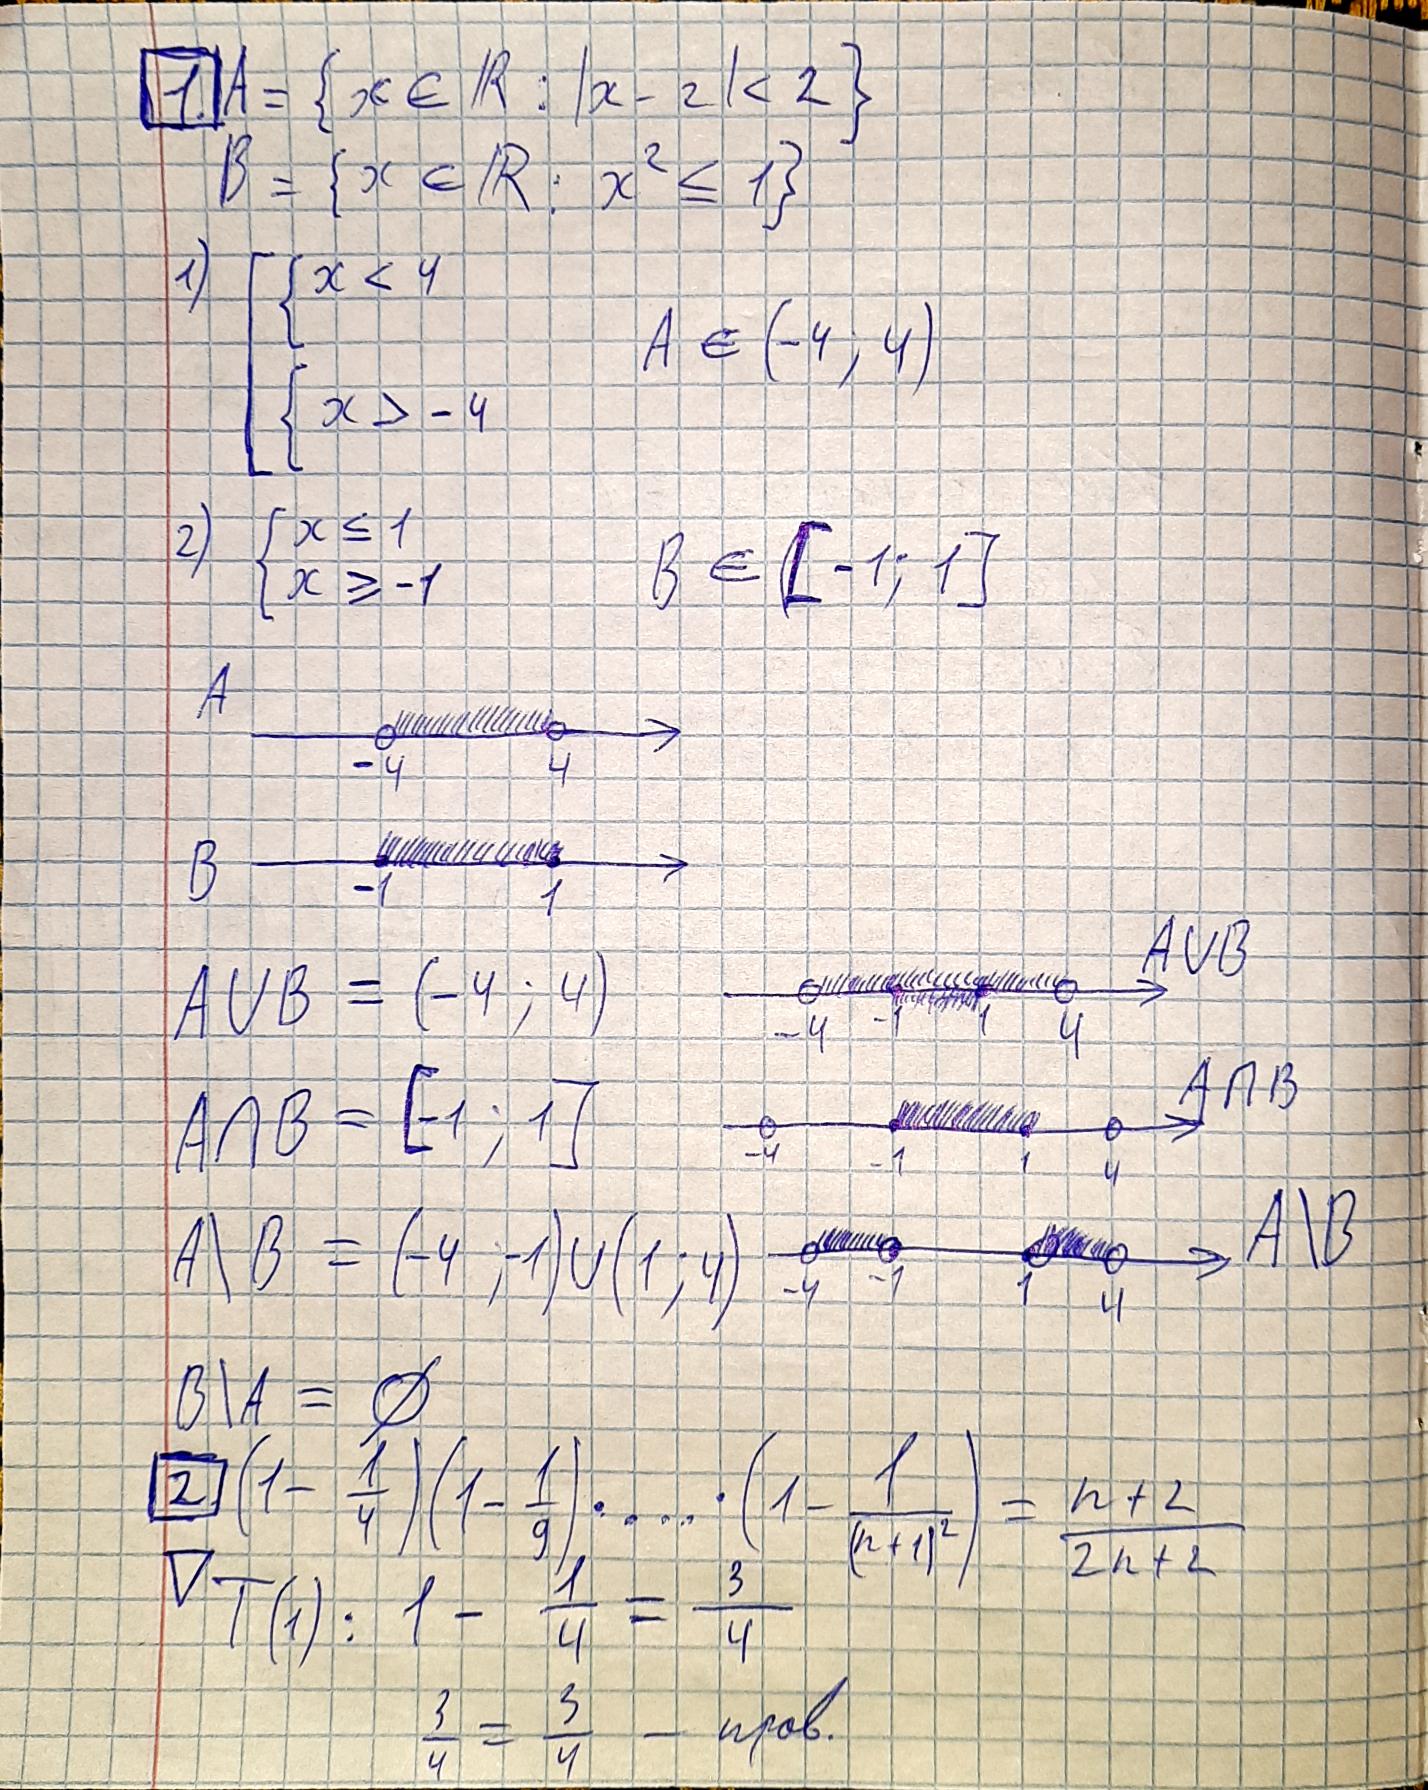 1. A = {x ∈ ℝ : |x - 2| < 2}
B = {x ∈ ℝ : x² ≤ 1}
1) [ { x < 4
{ x > -4
A ∈ (-4 ; 4)
2) { x ≤ 1
x ≥ -1
B ∈ [-1 ; 1]
A
-4 4
B
-1 1
A∪B = (-4 ; 4)
A∪B
-4 -1 1 4
A∩B = [-1 ; 1]
A∩B
-4 -1 1 4
A\B = (-4 ; -1)∪(1 ; 4)
A\B
-4 -1 1 4
B\A = ∅
2. (1 - 1/4)(1 - 1/9)·....·(1 - 1/(n+1)²) = (n+2)/(2n+2)
▽ T(1): 1 - 1/4 = 3/4
3/4 = 3/4 - пров.